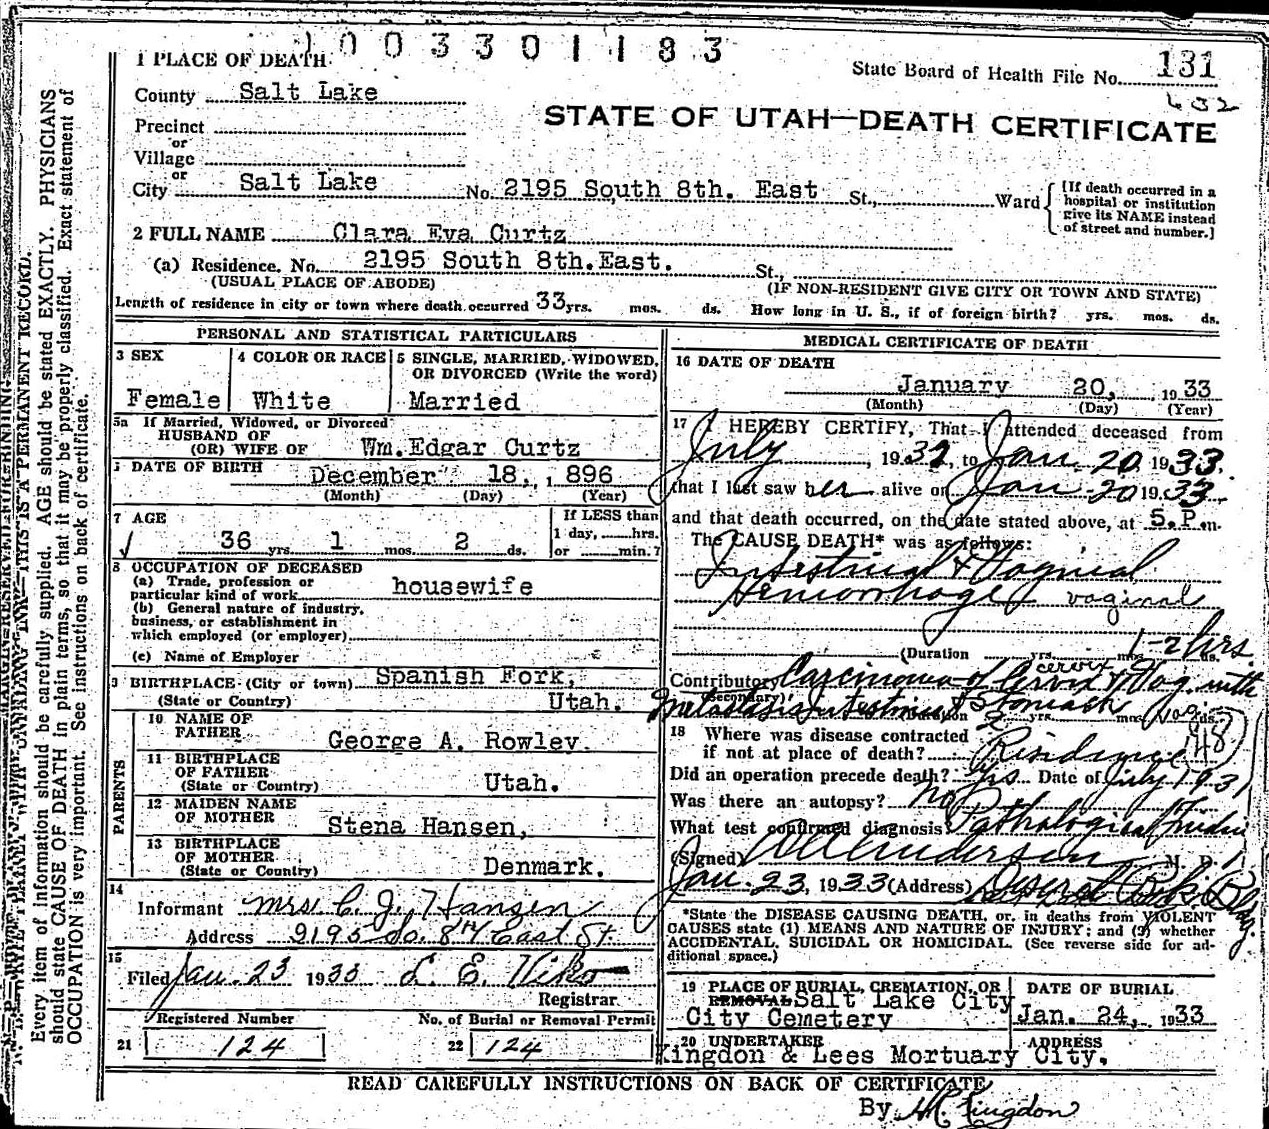 1003301183
1 PLACE OF DEATH
State Board of Health File No. 131
632
County Salt Lake
STATE OF UTAH—DEATH CERTIFICATE
Precinct
or
Village
or
City Salt Lake No. 2195 South 8th. East St., Ward
[If death occurred in a hospital or institution give its NAME instead of street and number.]
2 FULL NAME Clara Eva Curtz
(a) Residence. No. 2195 South 8th. East. St.,
(USUAL PLACE OF ABODE) (IF NON-RESIDENT GIVE CITY OR TOWN AND STATE)
Length of residence in city or town where death occurred 33 yrs. mos. ds. How long in U. S., if of foreign birth? yrs. mos. ds.
PERSONAL AND STATISTICAL PARTICULARS
3 SEX
Female
4 COLOR OR RACE
White
5 SINGLE, MARRIED, WIDOWED,
OR DIVORCED (Write the word)
Married
5a If Married, Widowed, or Divorced
HUSBAND OF
(OR) WIFE OF Wm. Edgar Curtz
DATE OF BIRTH
December 18, 1 896
(Month) (Day) (Year)
7 AGE
36 yrs. 1 mos. 2 ds.
If LESS than
1 day, hrs.
or min.?
8 OCCUPATION OF DECEASED
(a) Trade, profession or
particular kind of work housewife
(b) General nature of industry,
business, or establishment in
which employed (or employer)
(c) Name of Employer
9 BIRTHPLACE (City or town) Spanish Fork,
(State or Country) Utah.
PARENTS
10 NAME OF
FATHER George A. Rowley.
11 BIRTHPLACE
OF FATHER
(State or Country) Utah.
12 MAIDEN NAME
OF MOTHER Stena Hansen,
13 BIRTHPLACE
OF MOTHER
(State or Country) Denmark.
14
Informant Mrs. C. J. Hansen
Address 2195 So. 8th East St.
15
Filed Jan. 23 1933 L. E. Viko
Registrar
Registered Number
21 124
No. of Burial or Removal Permit
22 124
MEDICAL CERTIFICATE OF DEATH
16 DATE OF DEATH
January 20, 1933
(Month) (Day) (Year)
17 I HEREBY CERTIFY, That I attended deceased from
July, 1932, to Jan. 20, 1933.
that I last saw her alive on Jan 20 1933
and that death occurred, on the date stated above, at 5. P. m.
The CAUSE DEATH* was as follows:
Intestinal & Vaginal
Hemorrhage vaginal
(Duration yrs. mos. 1-2 hrs ds.
cervix
Contributory Carcinoma of Cervix & Vag. with
(Secondary) Metastasis intestines & Stomach
(Duration 2 yrs. mos. ds.
vag.
48
18 Where was disease contracted
if not at place of death? Residence
Did an operation precede death? Yes Date of July 1931
Was there an autopsy? No
What test confirmed diagnosis? Pathological
(Signed) Anderson M. D.
Jan. 23, 1933 (Address) Deseret Bk. Bldg.
*State the DISEASE CAUSING DEATH, or, in deaths from VIOLENT
CAUSES state (1) MEANS AND NATURE OF INJURY; and (2) whether
ACCIDENTAL, SUICIDAL OR HOMICIDAL. (See reverse side for ad-
ditional space.)
19 PLACE OF BURIAL, CREMATION, OR
REMOVAL Salt Lake City
City Cemetery
DATE OF BURIAL
Jan. 24, 1933
20 UNDERTAKER
Kingdon & Lees Mortuary
ADDRESS
City.
READ CAREFULLY INSTRUCTIONS ON BACK OF CERTIFICATE
By Kingdon
Every item of Information should be carefully supplied. AGE should be stated EXACTLY. PHYSICIANS
should state CAUSE OF DEATH in plain terms, so that it may be properly classified. Exact statement of
OCCUPATION is very important. See instructions on back of certificate.